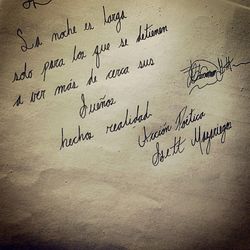 La noche es larga
solo para los que se detienen
a ver más de cerca sus
Sueños
hechos realidad.
Acción Poética
Isett Mazariegos